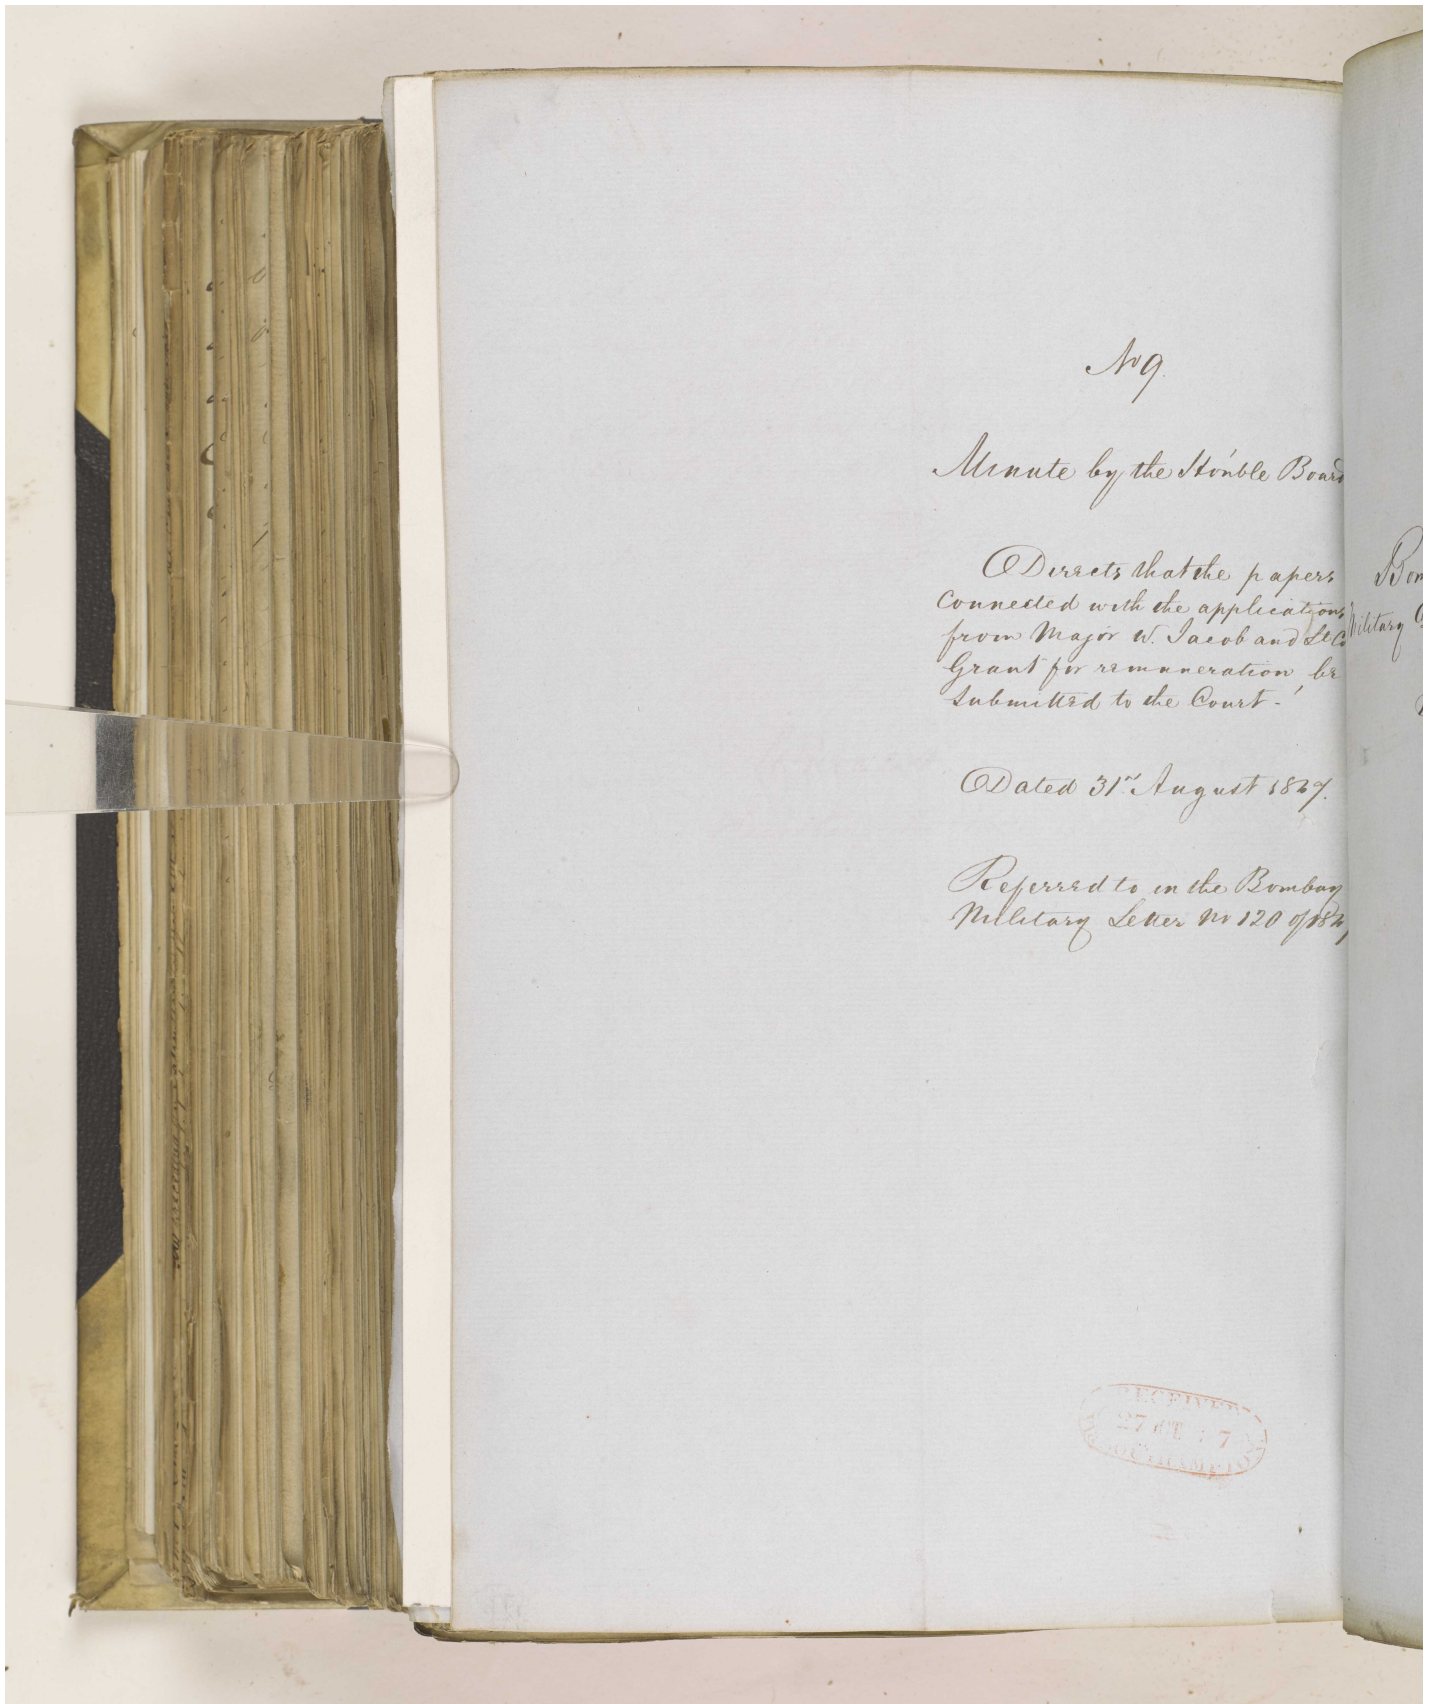 No 9.
Minute by the Hon'ble Board
Directs that the papers
Connected with the applications
from Major W. Jacob and Lt Co
Grant for remuneration be
submitted to the Court -
Dated 31st August 1847.
Referred to in the Bombay
Military Letter No 120 of 184
Bom
Military
RECEIVED
27 7